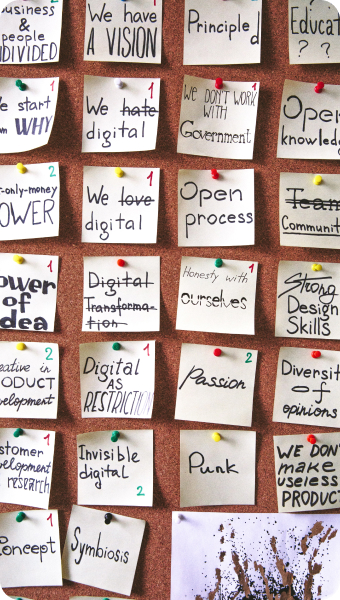 business
&
people
INDIVIDED
1
We have
A VISION
Principled
Educat
? ?
1
we start
WHY
1
We hate
digital
1
WE DON'T WORK
WITH
Government
Open
knowledg
2
-only-money
POWER
1
We love
digital
Open
process
Team
Communit
1
Power
of
idea
Digital
Transforma-
tion
1
Honesty with
ourselves
Strong
Design
Skills
2
eative in
ODUCT
velopment
1
Digital
AS
RESTRICTION
2
Passion
Diversit
of
opinions
1
stomer
velopment
research
Invisible
digital
2
Punk
WE DON'
make
useless
PRODUCT
1
Concept
Symbiosis